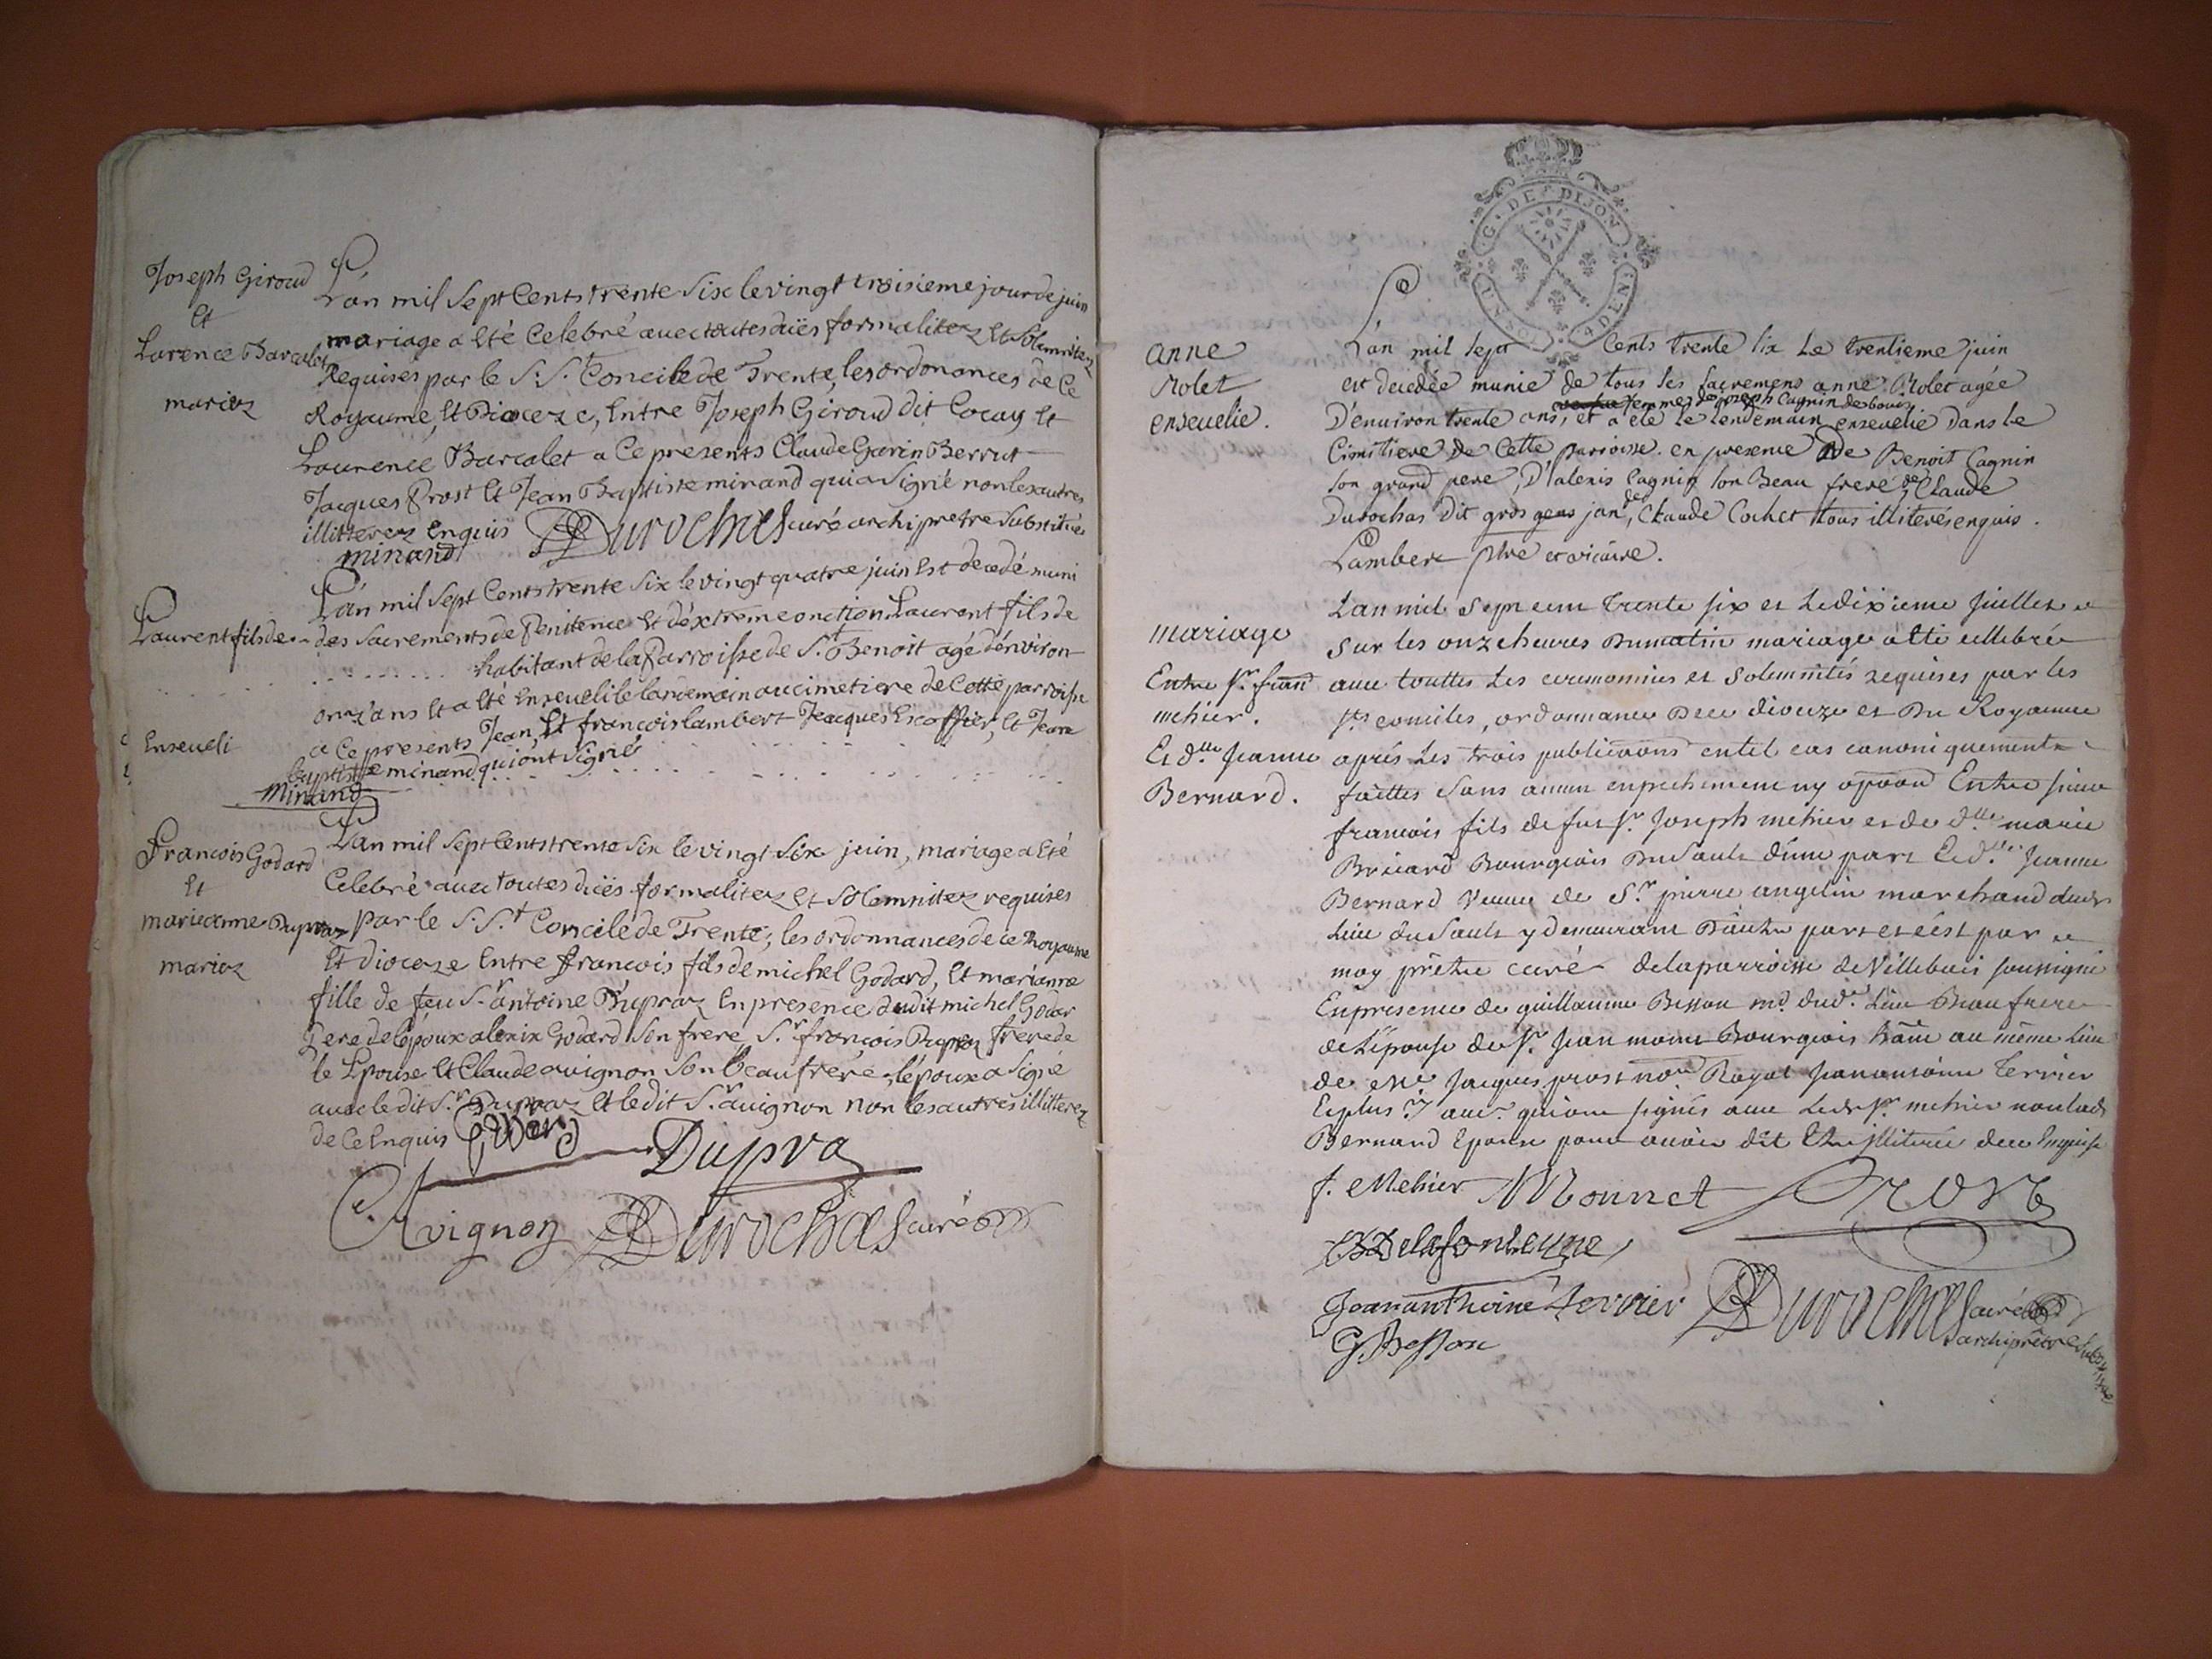 Joseph Giroud
Et
Lorence Barcalet
mariez
L'an mil Sept Cents trente Six le vingt troisieme jour de juin
mariage a Eté Celebré avec toutes duës formalitez Et Solemnitez
Requises par le S. St. Concile de Trente, les ordonances de Ce
Royaume, Et Dioceze, Entre Joseph Giroud dit Cocay Et
Laurence Barcalet a Ce presents Claude Gavin Berrut
Jacques Prost Et Jean Baptiste minand qui a Signé non les autres
illitterez Enquis Durochas curé archipretre Substitué
minand
Laurent fils de
Enseveli
L'an mil Sept Cents trente Six le vingt quatre juin Est decedé muni
des Sacrements de Penitence Et d'extreme onction Laurent fils de
habitant de la Parroisse de St. Benoit agé d'environ
onz'ans Et a Eté Enseveli le landemain au cimetiere de Cette parroisse
a Ce presents Jean, Et francois lambert Jacques Escoffier, Et Jean
baptiste minand qui ont Signé
Minand
Francois Godard
Et
marieanne Dupraz
mariez
L'an mil Sept Cents trente Six le vingt Six juin, mariage a Eté
Celebré avec toutes duës formalitez Et Solemnitez requises
par le S. St. Concile de Trente, les ordonnances de ce Royaume
Et dioceze Entre francois fils de michel Godard, Et marianne
fille de feu Sr. antoine Dupraz En presence dudit michel Godar
Pere de l'époux alexix Godard Son frere, Sr. francois Dupraz frere de
le Epouse Et Claude avignon Son beaufrere, l'époux a Signé
avec le dit Sr. Dupraz Et le dit Sr. avignon non les autres illitterez
de Ce Enquis
Dupra
Avignon Durochas curé
G. DE DIJON
anne
Rolet
ensevelie.
L'an mil sept Cents trente six Le trentieme juin
est decedée munie de tous ses sacremens anne Rolet agée
femme de joseph Cagnin de bouis
D'environ trente ans, et a eté le lendemain ensevelie dans le
Cimitiere de Cette parroisse. en presence De Benoit Cagnin
son grand pere, D'alexis Cagnin son Beau frere de Claude
Durochas dit gros jan, de Claude Cochet tous illiterés enquis.
Lambert ptre et vicaire.
mariage
Entre Sr. fran
mehier.
Et dlle Jeanne
Bernard.
L'an mil sept cent trente six et le dixieme juillet
sur les onze heures du matin mariage a eté cellebré
avec touttes les ceremonies et solemnités requises par les
sts conciles, ordonnances de ce dioceze et du Royaume
aprés les trois publications en tel cas canoniquement
faittes sans aucun enpechement ny opoon Entre sieur
francois fils de fut sr. Joseph mehier et de dlle marie
Bricard Bourgeois du Sault d'une part Et dlle Jeanne
Bernard veuve de Sr. pierre angelin marchand dudt
Lieu du Sault y demeurant d'autre part et c'est par
moy prêtre curé de la parroisse de Villebois soussigné
En presence de guillaume Besson md. dud. Lieu Beau frere
de L'épouse de sr. Jean monet Bourgeois au même Lieu
de me Jacques prost nore Royal Jean antoine Terrier
Et plus rs autrs qui ont signés avec Ledt sr. mehier non lad
Bernard Epouse pour avoir dit Etre illiterée de ce Enquise
f. Mehier Monnet Prost
Delafonteyne
Jeananthoine Terrier Durochas curé
archiprêtre Substitué
G. Besson